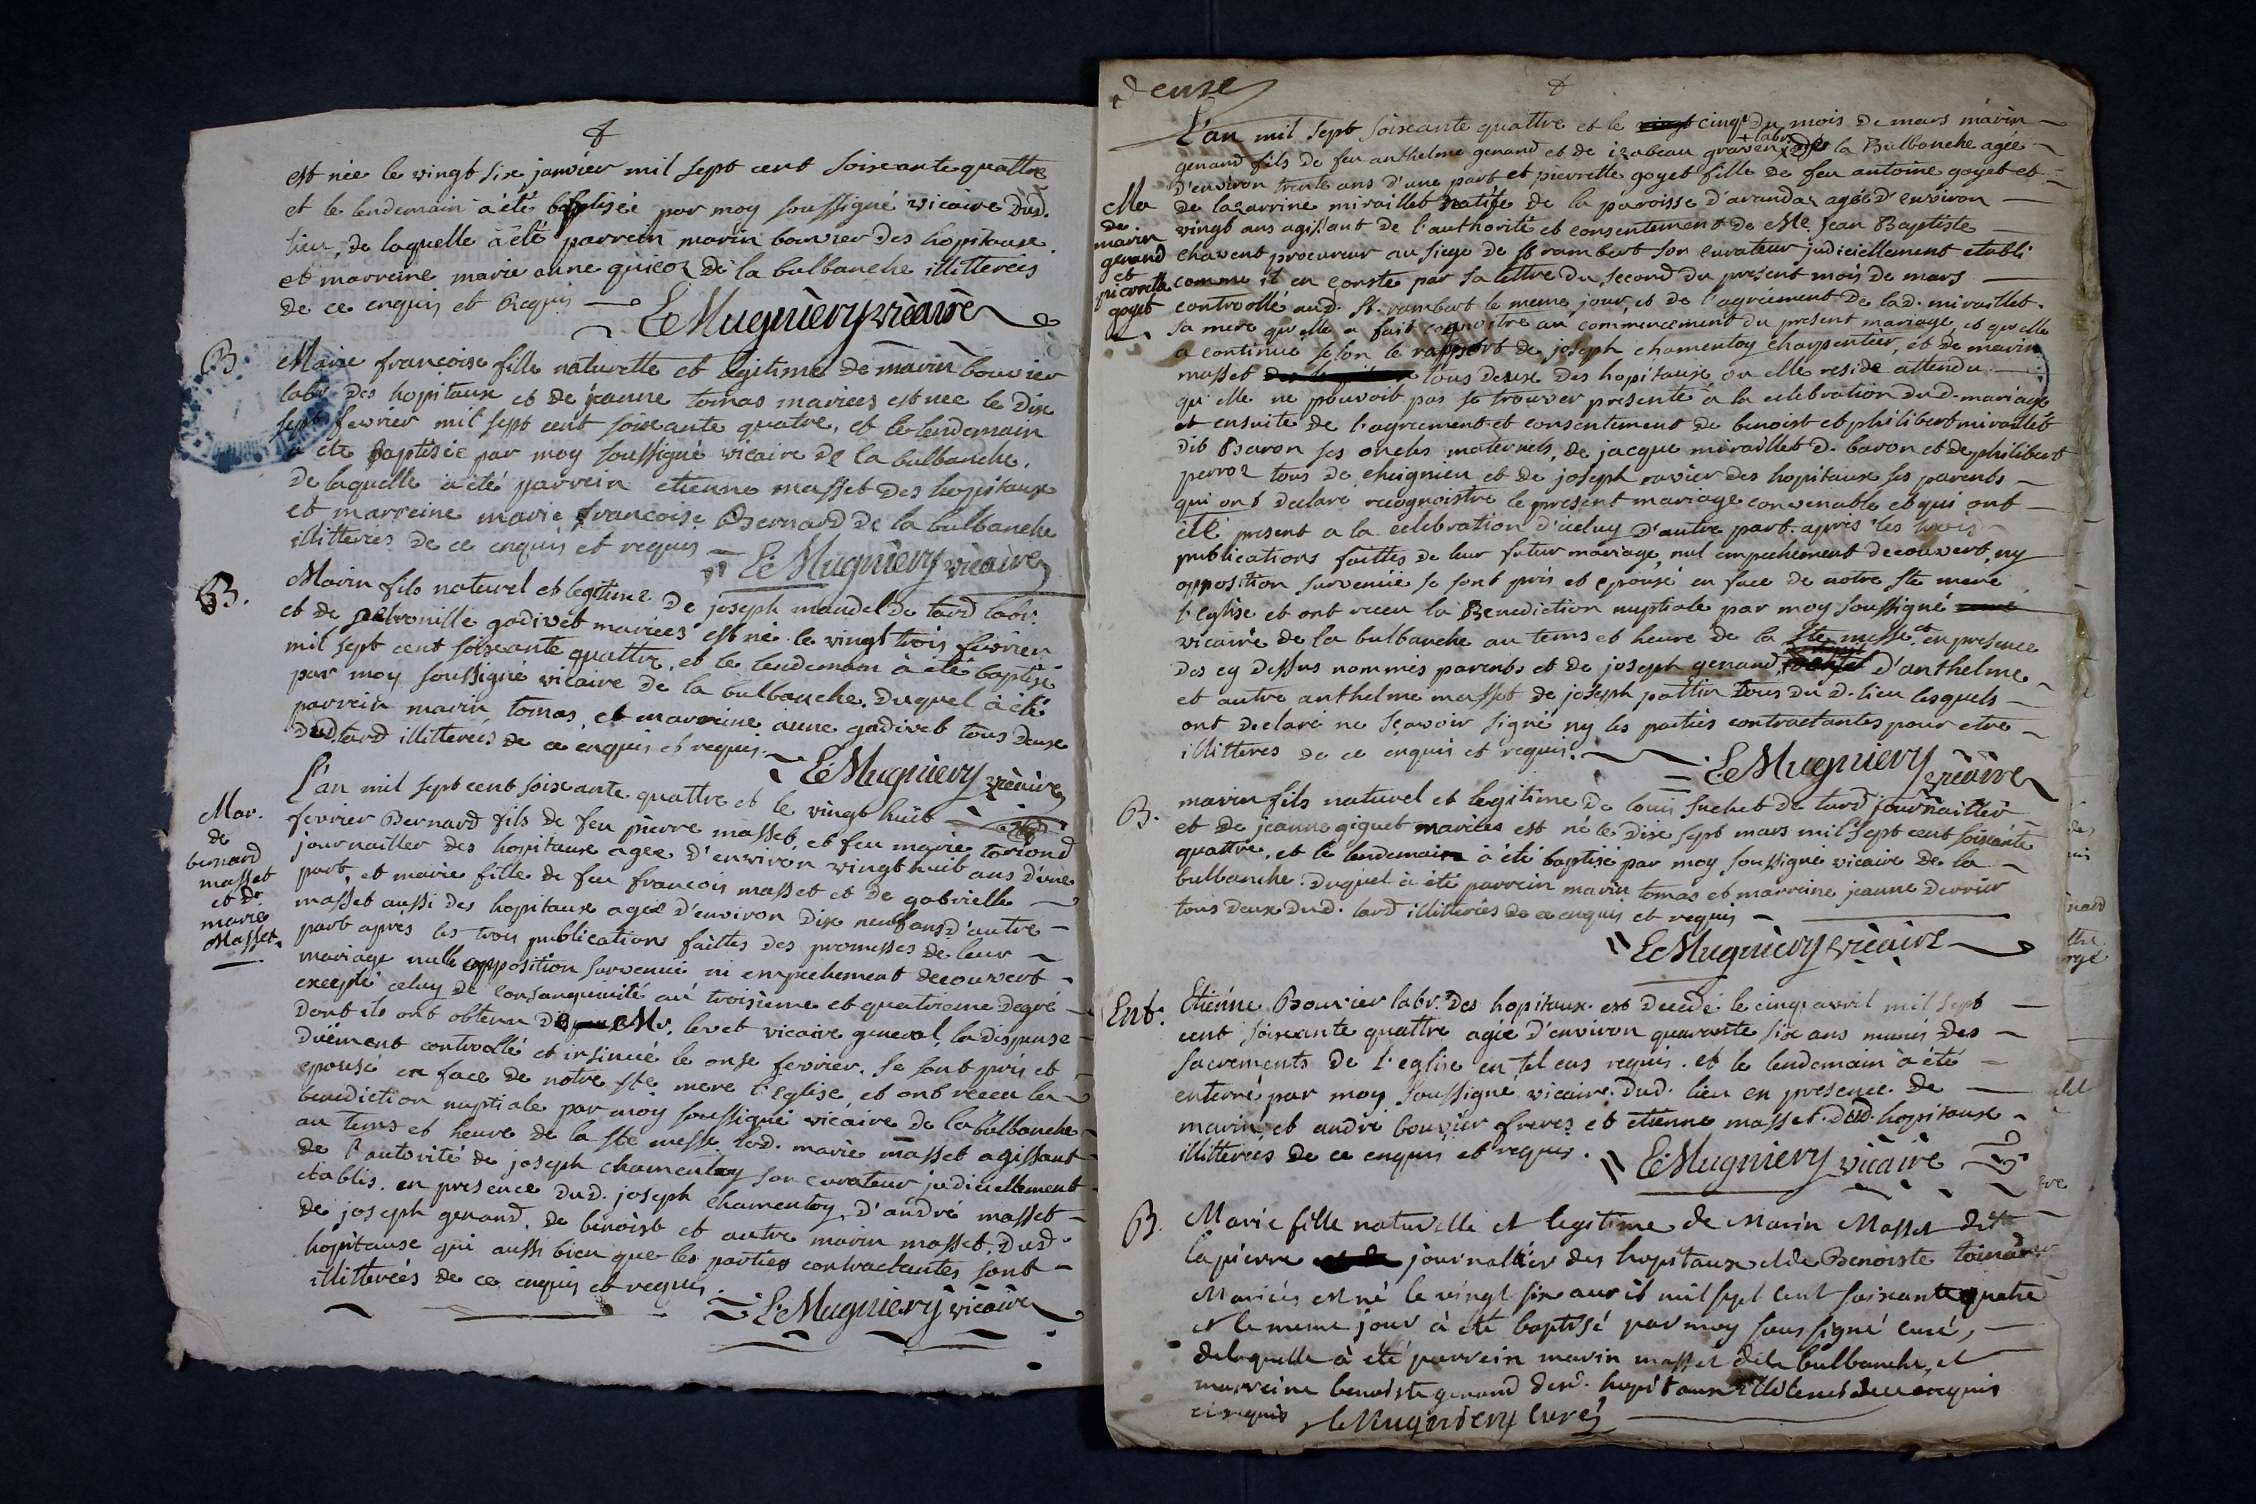 est née le vingt six janvier mil sept cent soixante quattre
et le lendemain à été baptisée par moy soussigné vicaire dud.
lieu, de laquelle à été parrein marin bouvier des hopitaux
et marreine marie anne guicoz de la balbanche illitterées
de ce enquis et Requis
E Mugnièry vicaire
B
Marie françoise fille naturelle et légitime de marin bouvier
labr des hopitaux et de jeanne tomas mariées est née le dix
sept fevrier mil sept cent soixante quatre, et le lendemain
a été baptisée par moy soussigné vicaire de la balbanche,
de laquelle à été parrein etienne masset des hopitaux
et marreine marie françoise Bernard de la balbanche
illitterées de ce enquis et requis
E Mugnièry vicaire
B.
Marin fils naturel et legitime de joseph mandel de tard labr.
et de petronille godivet mariées est né le vingt trois fevrier
mil sept cent soixante quattre, et le lendemain à été baptisé
par moy soussigné vicaire de la balbanche. duquel à été
parrein marin tomas, et marreine anne godivet tous deux
dud. tard illitterées de ce enquis et requis
E Mugniery vicaire
Mar.
de
bernard
masset
et de
marie
Masset.
L'an mil sept cent soixante quattre et le vingt huit
fevrier Bernard fils de feu pierre masset, et feu marie toriond
journailler des hopitaux agee d'environ vingt huit ans d'une
part, et marie fille de feu francois masset et de gabrielle
masset aussi des hopitaux agée d'environ dix neuf ans d'autre
part après les trois publications faittes des promesses de leur
mariage nulle opposition survenuë ni empechement decouvert
excepté celuy de consanguinité au troisième et quatrieme degré
dont ils ont obtenu de Mr. levet vicaire general, la dispense
duëment controllé et insinué le onse fevrier. se sont pris et
epousé en face de notre ste mere l'Eglise, et ont receu la
benediction nuptiale par moy soussigné vicaire de la balbanche
au tems et heure de la ste messe lad. marie masset agissant
de l'autorité de joseph chamentoy son curateur judiciellement
établis. en presence dud. joseph chamentoy, d'andré masset
de joseph genand, de benoist et autre marin masset, dusd.
hopitaux qui aussi bien que les parties contractantes sont
illitterées de ce enquis et requis.
E Mugniery vicaire
deuxe
L'an mil sept soixante quattre et le cinqe du mois de mars marin
genand fils de feu anthelme genand et de izabeau graven labr de la Balbanche agée
d'environ trente ans d'une part et pierrette goyet fille de feu antoine goyet et
Ma
de
marin
genand
et
pierrette
goyet
de lazarrine miraillet native de la paroisse d'aranda agée d'environ
vingt ans agissant de l'authorité et consentement de Me. Jean Baptiste
chavent procureur au siege de St rambert son curateur judiciellement etabli
comme il en conste par sa lettre du second du present mois de mars
controllé aud. St. rambert le meme jour, et de l'agréement de lad. miraillet
sa mere qu'elle a fait connoitre au commencement du present mariage, et qu'elle
a continué selon le rapport de joseph chamentoy charpentier, et de marin
masset tous deux des hopitaux ou elle reside attendu
qu'elle ne pouvoit pas se trouver présente a la celebration dud. mariage
et ensuite de l'agreement et consentement de benoist et philibert miraillet
dit Baron ses oncles maternels, de jacque miraillet d. baron et de philibert
perroz tous de cheignieu, et de joseph ravier des hopitaux ses parents
qui ont declaré recognoistre le present mariage convenable et qui ont
été present a la celebration d'iceluy d'autre part après les trois
publications faittes de leur futur mariage, nul empechement decouvert, ny
opposition survenuë se sont pris et epousé en face de notre Ste mere
l'eglise et ont receu la Benediction nuptiale par moy soussigné
vicaire de la balbanche au tems et heure de la Ste messe, et en presence
des cy dessus nommés parents et de joseph genand d'anthelme
et autre anthelme masset de joseph pattin tous du d. lieu lesquels
ont declaré ne sçavoir signé ny les parties contractantes pour etre
illitteres de ce enquis et requis.
E Mugniery vicaire
B.
marin fils naturel et legitime de louis suchet de tard journailler
et de jeanne giguet mariées est né le dix sept mars mil sept cent soixante
quattre, et le lendemain à été baptisé par moy soussigné vicaire de la
balbanche. duquel à été parrein marin tomas et marreine jeanne derrier
tous deux dud. tard illitterées de ce enquis et requis
E Mugnièry vicaire
Ent.
Etiénne Bouvier labr. des hopitaux est decedé le cinq avril mil sept
cent soixante quattre agée d'environ quarante six ans munis des
sacrements de l'eglise en tel cas requis. et le lendemain à été
enterré par moy soussigné vicaire dud. lieu en presence de
marin, et andré bouvier freres et etienne masset dud. hopitaux
illitterées de ce enquis et requis.
E Mugniery vicaire
B.
Marie fille naturelle et legitime de Marin Masset dit
lapierre journallier des hopitaux et de Benoiste toinard
Mariés est né le vingt six auril mil sept cent soixante quatre
et le meme jour à été baptisé par moy soussigné curé,
de laquelle à été parrein marin masset de la balbanche, et
marreine benoiste genand desd. hopitaux illiterés de ce enquis
et requis
E Mugniery curé